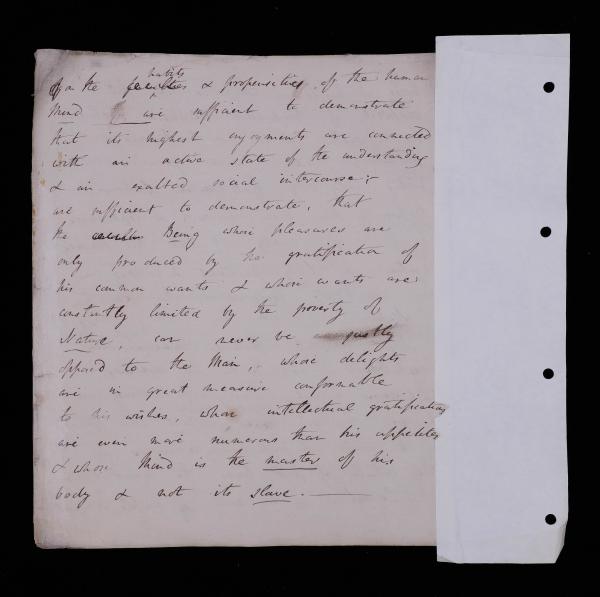 habits
of on the & propensities of the human
Mind are sufficient to demonstrate
that its highest enjoyments are connected
with an active state of the understanding
& an exalted social intercourse; -
are sufficient to demonstrate, that
the Being whose pleasures are
only produced by the gratification of
his common wants & whose wants are
constantly limited by the poverty of
Nature, can never be justly
opposed to the Man, whose delights
are in great measure conformable
to his wishes, whose intellectual gratifications
are even more numerous than his appetites
& whose Mind is the master of his
body & not its slave. —